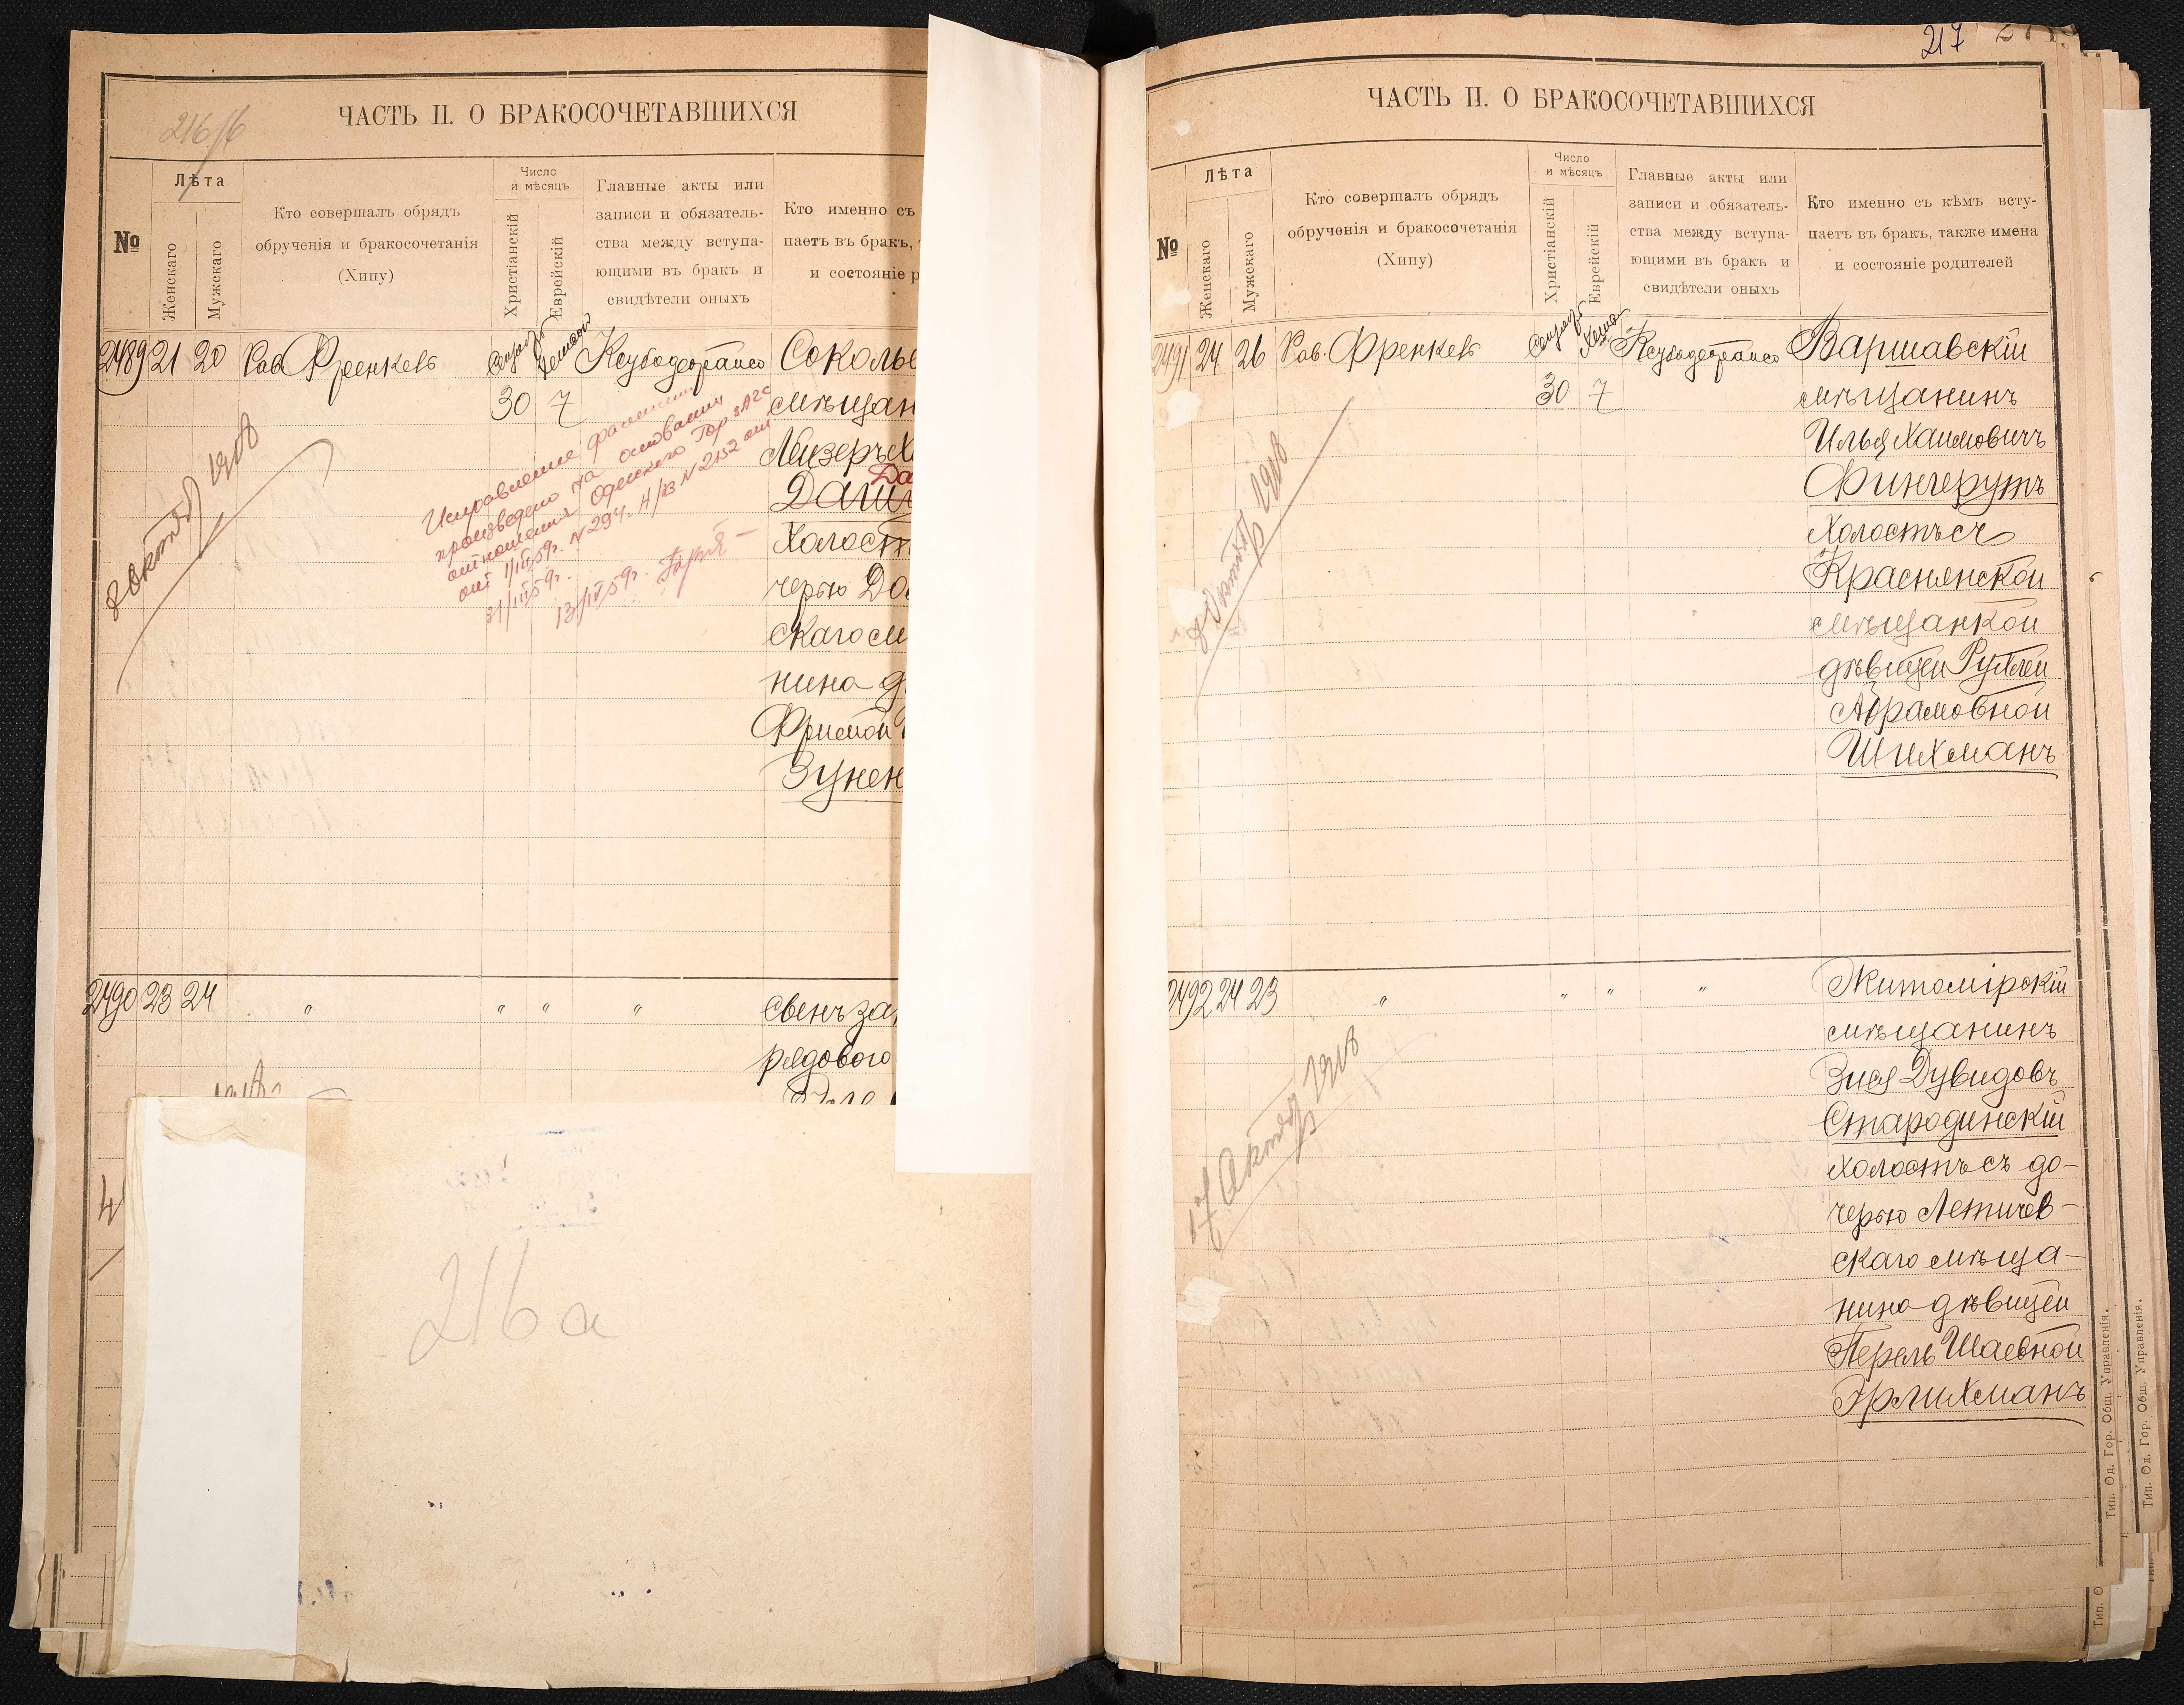 216/б
ЧАСТЬ II. О БРАКОСОЧЕТАВШИХСЯ
№
Лѣта
Женскаго
Мужскаго
Кто совершалъ обрядъ
обрученія и бракосочетанія
(Хипу)
Число
и мѣсяцъ
Христіанскій
Еврейскій
Главные акты или
записи и обязатель-
ства между вступа-
ющими въ бракъ и
свидѣтели оныхъ
Кто именно съ
паетъ въ бракъ,
и состояніе р
2489 21 20 Рав. Френкель
30 7
Соколь
мѣщан
Лейзеръ Х
Да
Даш
Холост
черью До
скаго м
нина д
Фримой
Зунен
8 Октяб 1918
Исправление фамилии
произведено на основании
отношения Одесского Гор ЗАГС
от 1/III 59г. N 294. и N 2152 от
31/III 59г.
13/IV 59г.
2490 23 24 " " " "
Свенъ за
рядового
216 а
217
ЧАСТЬ II. О БРАКОСОЧЕТАВШИХСЯ
№
Лѣта
Женскаго
Мужскаго
Кто совершалъ обрядъ
обрученія и бракосочетанія
(Хипу)
Число
и мѣсяцъ
Христіанскій
Еврейскій
Главные акты или
записи и обязатель-
ства между вступа-
ющими въ бракъ и
свидѣтели оныхъ
Кто именно съ кѣмъ всту-
паетъ въ бракъ, также имена
и состояніе родителей
2491 24 26 Рав. Френкель
30 7
Варшавскій
мѣщанинъ
Илья Хаимовичъ
Фингерутъ
Холостъ съ
Краснянской
мѣщанкой
дѣвицей Рухлей
Абрамовной
Шихманъ
8 Октяб 1918
2492 24 23 " " " "
Житомірскій
мѣщанинъ
Зися Дувидовъ
Стародинскій
холостъ съ до-
черью Летичев-
скаго мѣща-
нина дѣвицей
Перель Шаевной
Эрлихманъ
17 Октяб 1918
Тип. Од. Гор. Общ. Управленія.
Тип. Од. Гор. Общ. Управленія.